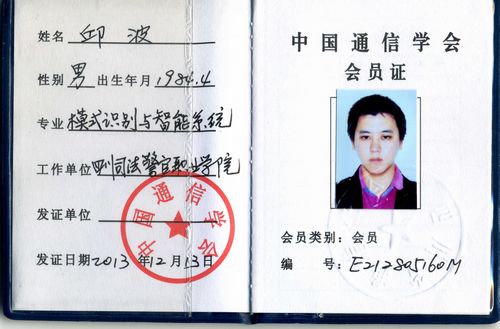 姓名 邱波
性别 男 出生年月 1984.4
专业 模式识别与智能系统
工作单位 四川司法警官职业学院
发证单位
中国通信学会
发证日期 2013年12月13日
中国通信学会
会员证
会员类别：会员
编 号：E212805160M